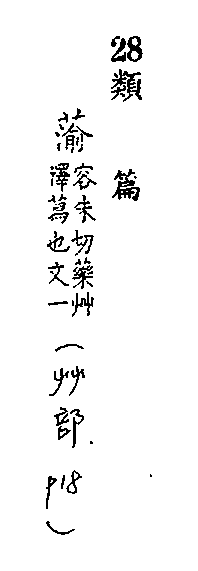 28類篇
蕍容朱切藥艸
澤蕮也文一(艸部.p18)